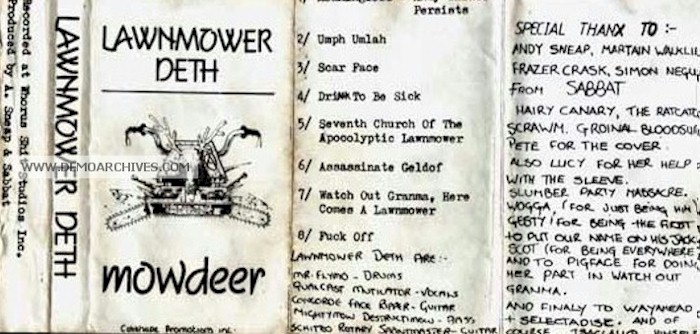 Recorded at Whorus Shi Studios Inc.
Produced by A. Sneap & Sabbat
LAWNMOWER DETH
LAWNMOWER
DETH
WWW.DEMOARCHIVES.COM
mowdeer
Promotions inc.
Persists
2/ Umph Umlah
3/ Scar Face
4/ Drink To Be Sick
5/ Seventh Church Of The
Apocolyptic Lawnmower
6/ Assassinate Geldof
7/ Watch Out Granma, Here
Comes A Lawnmower
8/ Fuck Off
LAWNMOWER DETH ARE:-
MR FLYMO - DRUMS
QUALCAST MUTILATOR - VOCALS
CONCORDE FACE RIPPER - GUITAR
MIGHTYMOW DESTRUCTIMOW - BASS
SCHIZO ROTARY SPRINTMASTER - GUITAR
SPECIAL THANX TO :-
ANDY SNEAP, MARTAIN
FRAZER CRASK, SIMON
FROM SABBAT
HAIRY CANARY, THE
SCRAWM. GROINAL
PETE FOR THE COVER.
ALSO LUCY FOR HER HELP
WITH THE SLEEVE.
SLUMBER PARTY MASSACRE.
WOGGA, (FOR JUST BEING HIM)
GEETY (FOR BEING THE FIRST
TO PUT OUR NAME ON HIS
SCOT (FOR BEING EVERYWHERE)
AND TO PIGFACE FOR DOING
HER PART IN WATCH OUT
GRANMA.
AND FINALLY TO WAYAHEAD
+ SELECTADISC. AND OF